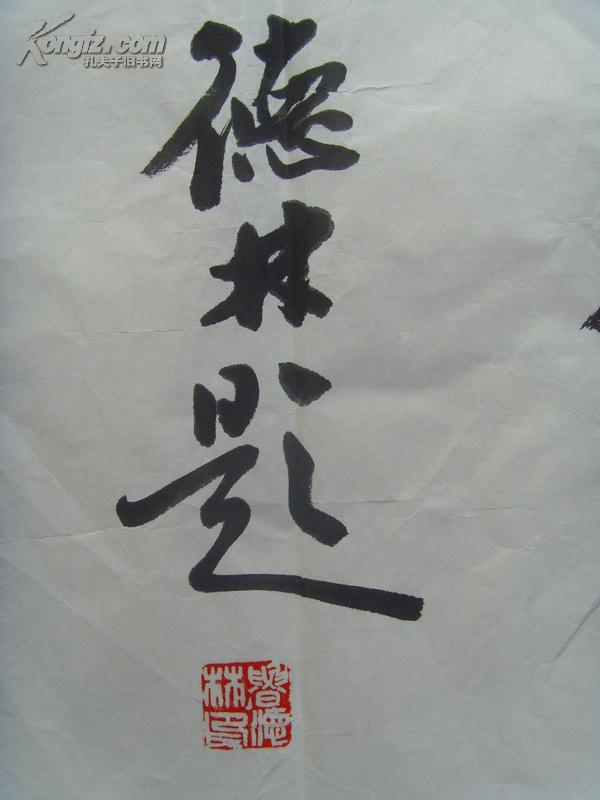 Kongfz.com
孔夫子旧书网
德林题
曾德
林印